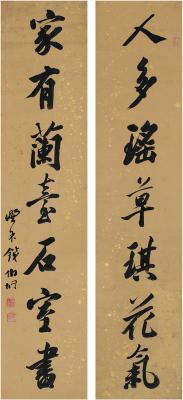 人多瑤草琪花氣
家有蘭臺石室書